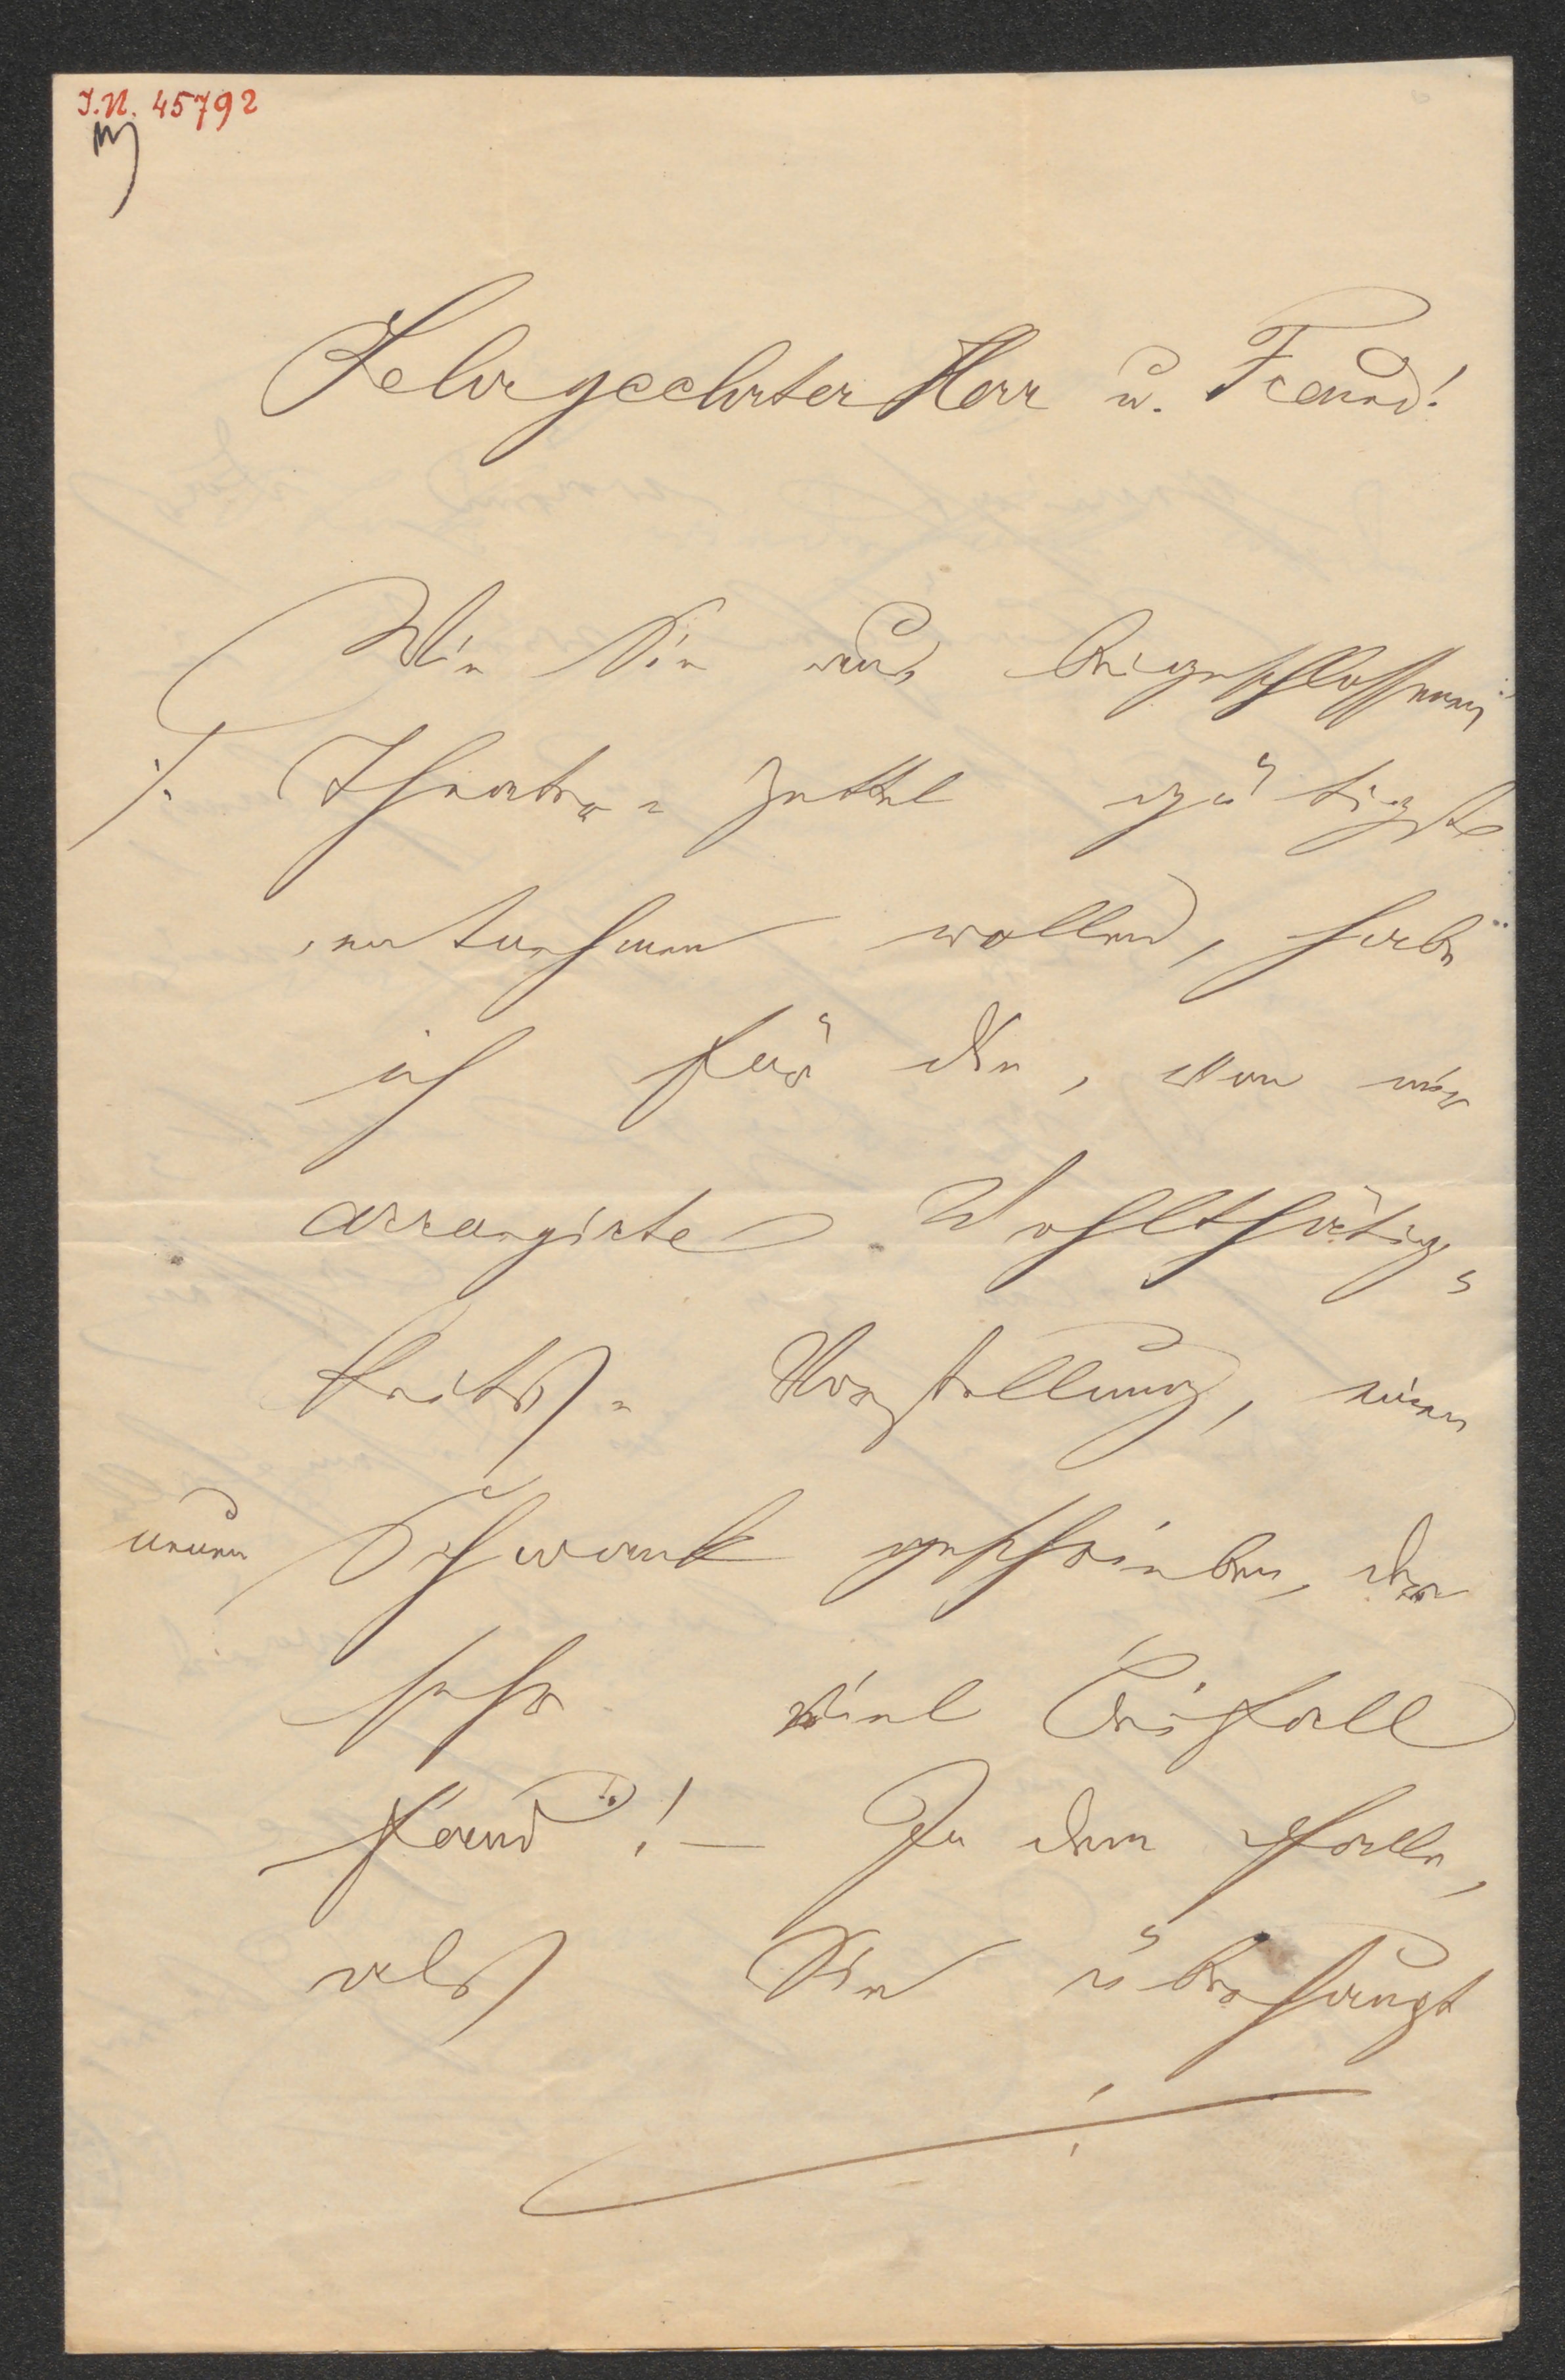 I.N. 45792
Sehrgeehrter Herr u. Freund!
Wie Sie aus beigeschlossenen
./. Theater-Zettel gütigst
entnehmen wollen, habe
ich für die, von mir
arrangirte Wohlthätig-
keits-Vorstellung, einen
neuen Schwank geschrieben, der
sehr viel Beifall
fand! — In dem Falle,
als Sie überhaupt